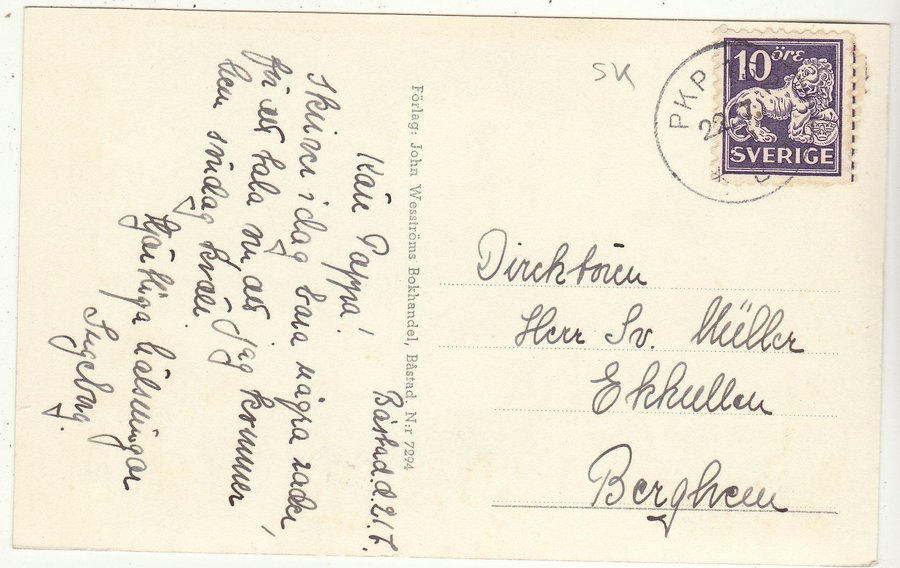 Båstad. d. 21. 7.
Käre Pappa!
Skriver idag bara några rader,
för att tala om, att jag kommer
hem söndag kväll.
Hjärtliga hälsningar
Ingeborg.
Förlag: John Wesströms Bokhandel, Båstad. N:r 7294
SK
PKP
22
10 öre
SVERIGE
Direktören
Herr Sv. Müller
Ekkullen
Berghem